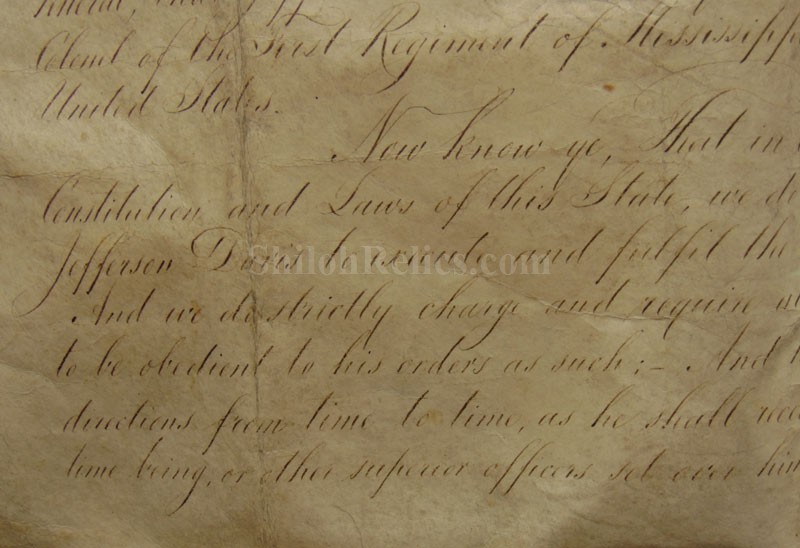 Colonel of the First Regiment of Mississippi
United States.
Now know ye, That in
Constitution and Laws of this State, we do
Jefferson Davis to execute and fulfil the
ShilohRelics.com
And we do strictly charge and require
to be obedient to his orders as such; – And
directions from time to time, as he shall
time being, or other superior officers set over him